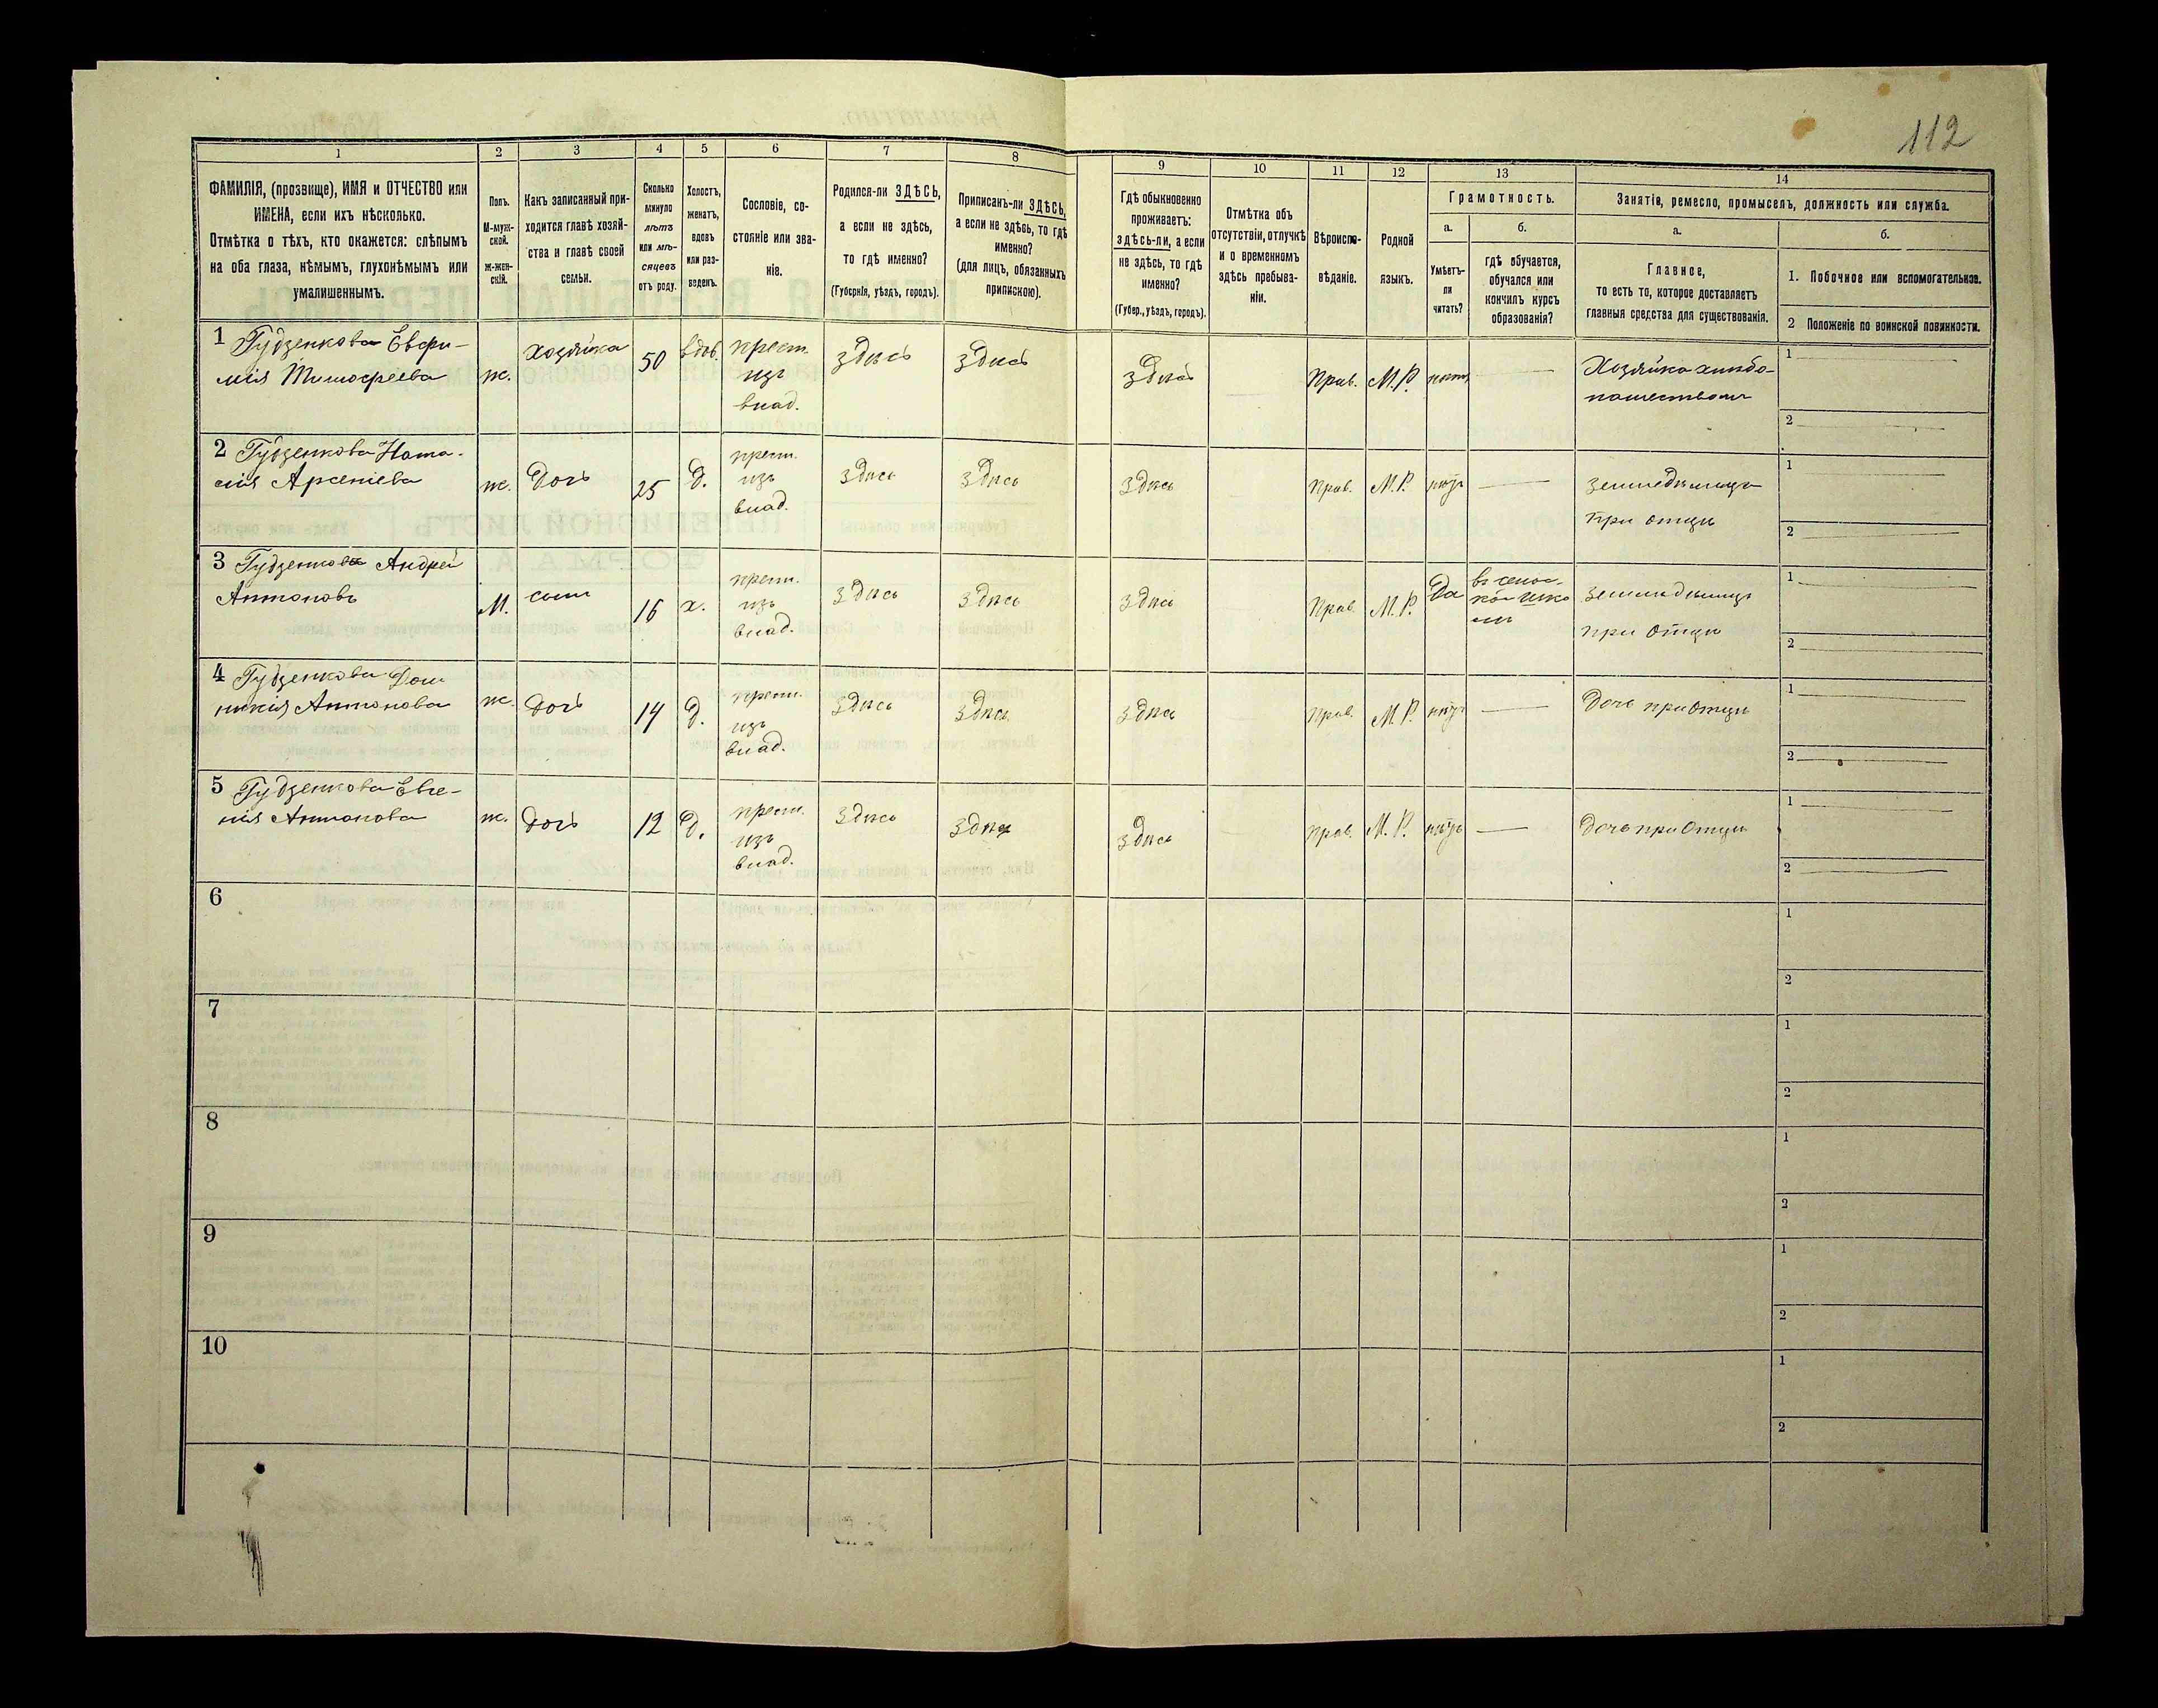 112
1
2
3
4
5
6
7
8
9
10
11
12
13
14
ФАМИЛІЯ, (прозвище), ИМЯ и ОТЧЕСТВО или
ИМЕНА, если ихъ нѣсколько.
Отмѣтка о тѣхъ, кто окажется: слѣпымъ
на оба глаза, нѣмымъ, глухонѣмымъ или
умалишеннымъ.
Полъ.
М-муж-
ской.
ж-жен-
скій.
Какъ записанный при-
ходится главѣ хозяй-
ства и главѣ своей
семьи.
Сколько
минуло
лѣтъ
или мѣ-
сяцевъ
отъ роду.
Холостъ,
женатъ,
вдовъ
или раз-
веденъ.
Сословіе, со-
стояніе или зва-
ніе.
Родился-ли ЗДѢСЬ,
а если не здѣсь,
то гдѣ именно?
(Губернія, уѣздъ, городъ).
Приписанъ-ли ЗДѢСЬ,
а если не здѣсь, то гдѣ
именно?
(для лицъ, обязанныхъ
припискою).
Гдѣ обыкновенно
проживаетъ:
здѣсь-ли, а если
не здѣсь, то гдѣ
именно?
(Губер., уѣздъ, городъ).
Отмѣтка объ
отсутствіи, отлучкѣ
и о временномъ
здѣсь пребыва-
ніи.
Вѣроиспо-
вѣданіе.
Родной
языкъ.
Грамотность.
а.
Умѣетъ-
ли
читать?
б.
гдѣ обучается,
обучался или
кончилъ курсъ
образованія?
Занятіе, ремесло, промыселъ, должность или служба.
а.
Главное,
то есть то, которое доставляетъ
главныя средства для существованія.
б.
1. Побочное или вспомогательное.
2 Положеніе по воинской повинности.
1 Гудзенкова Евфи-
мія Тимофеева
ж.
хозяйка
50
вдов.
крест.
изъ
влад.
здѣсь
здѣсь
здѣсь
Прав.
М.Р.
нѣтъ
Хозяйка хлѣбо-
пашествомъ
1
2
2 Гудзенкова Ната-
лія Арсеніева
ж.
дочь
25
д.
крест.
изъ
влад.
здѣсь
здѣсь
здѣсь
Прав.
М.Р.
нѣтъ
земледѣлица
при отцѣ
1
2
3 Гудзенковъ Андрей
Антоновъ
М.
сынъ
16
х.
крест.
изъ
влад.
здѣсь
здѣсь
здѣсь
Прав.
М.Р.
Да
въ сельс-
кой шко
лѣ
земледѣлецъ
при отцѣ
1
2
4 Гудзенкова Дом
никія Антонова
ж.
дочь
14
д.
крест.
изъ
влад.
здѣсь
здѣсь
здѣсь
Прав.
М.Р.
нѣтъ
Дочь при отцѣ
1
2
5 Гудзенкова Евге-
нія Антонова
ж.
дочь
12
д.
крест.
изъ
влад.
здѣсь
здѣсь
здѣсь
Прав.
М.Р.
нѣтъ
Дочь при отцѣ
1
2
6
1
2
7
1
2
8
1
2
9
1
2
10
1
2